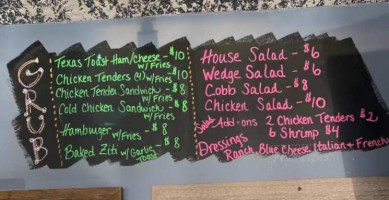 GRUB
Texas Toast Ham/cheese - $10
w/Fries
Chicken Tenders (4) w/Fries - $10
Chicken Tender Sandwich - $8
w/Fries
Cold Chicken Sandwich - $8
w/Fries
Hamburger w/Fries - $8
Baked Ziti w/Garlic Toast - $8
House Salad - $6
Wedge Salad - $6
Cobb Salad - $8
Chicken Salad - $10
Salad Add-ons 2 Chicken Tenders $2
6 Shrimp $4
Dressings
Ranch, Blue Cheese, Italian + French